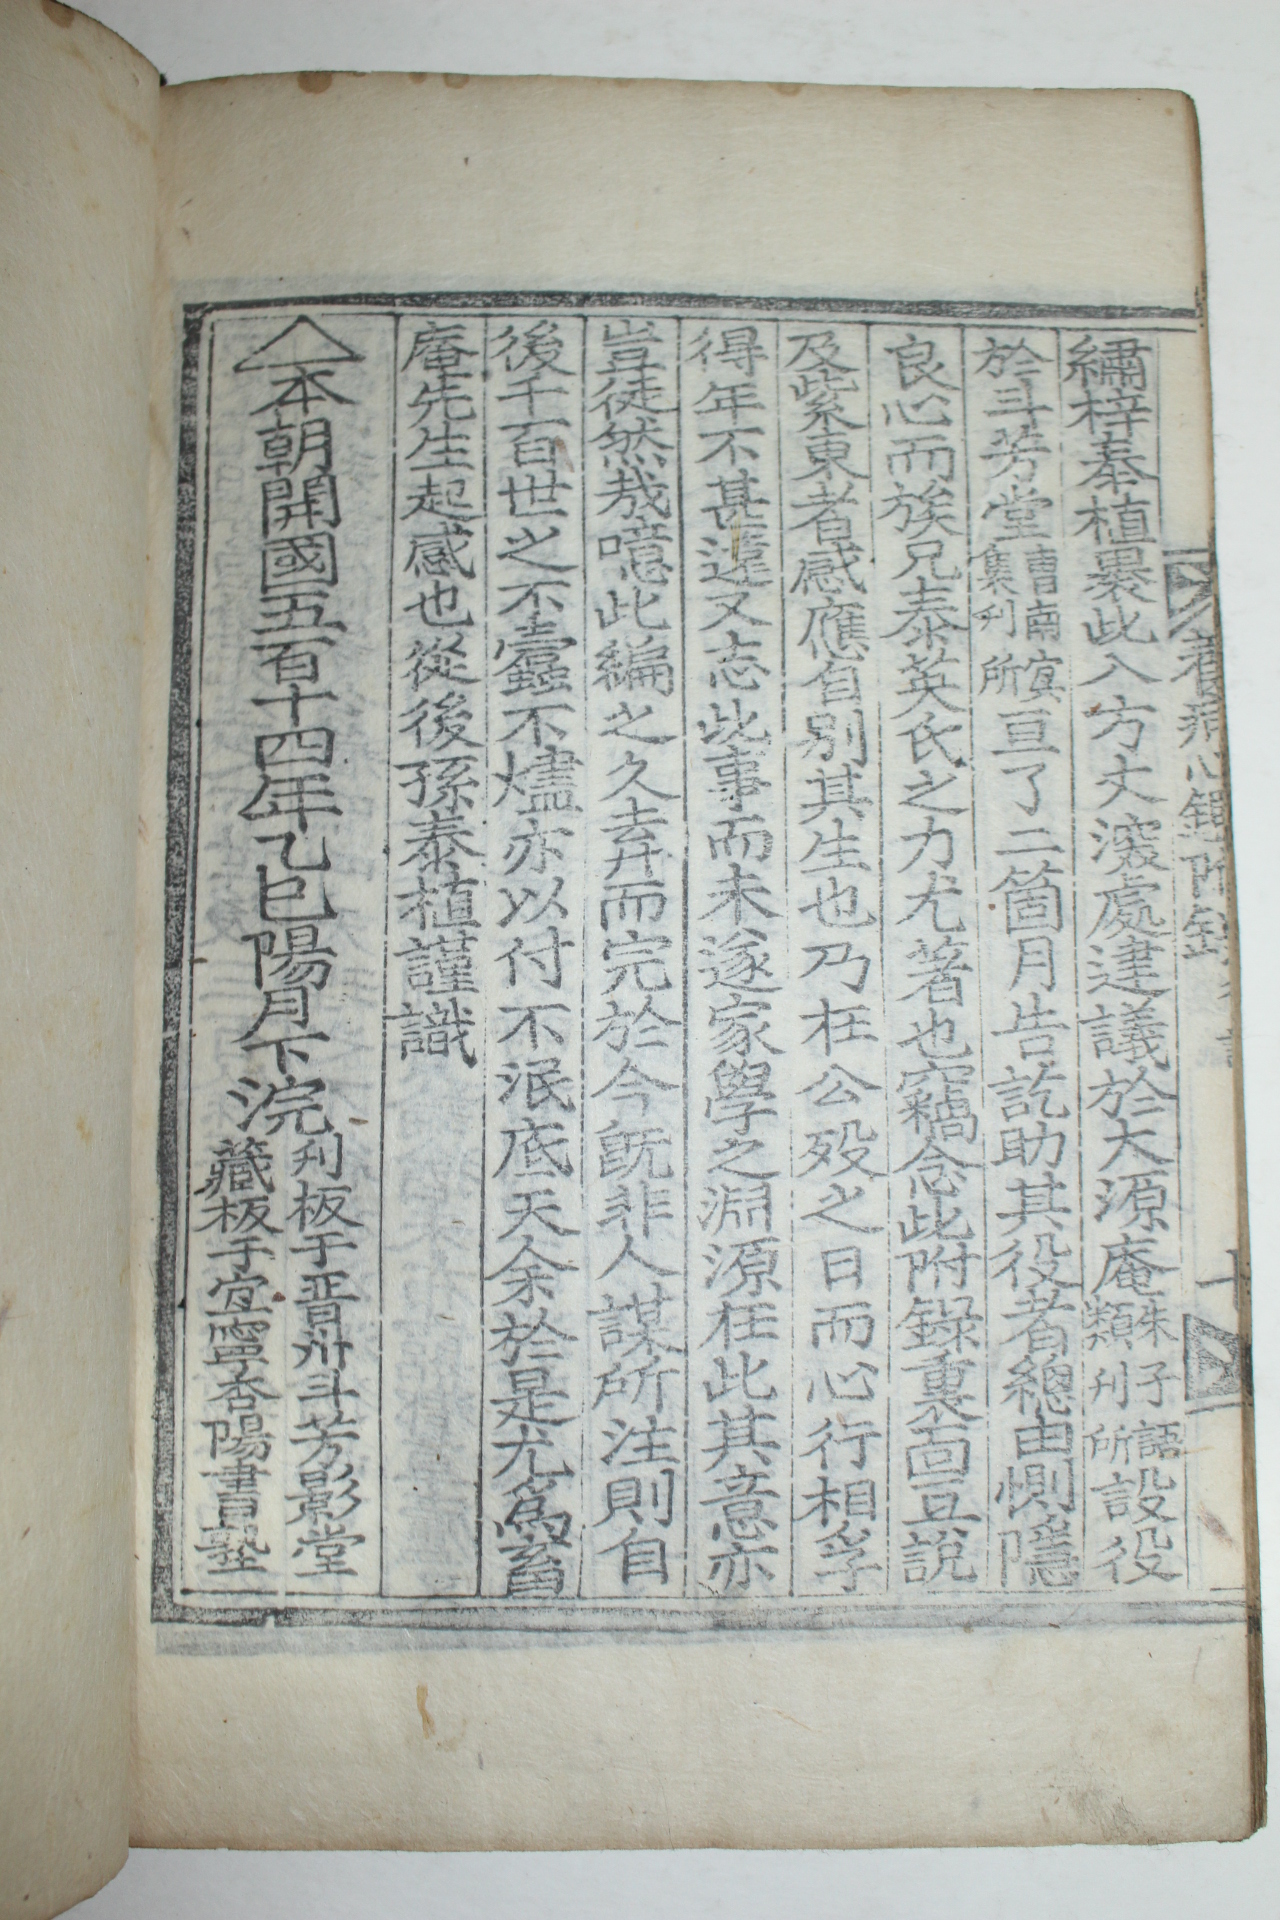 養蒙心鑑附錄
十
繡梓泰植褁此入方丈深處建議於大源庵朱子語類刊所設役
於斗芳堂曺南冥集刊所亘了二箇月告訖助其役者總由惻隱
良心而族兄泰英氏之力尤著也竊念此附錄裏面互說
及紫東者感應自別其生也乃在公歿之日而心行相孚
得年不甚遠又志此事而未遂家學之淵源在此其意亦
豈徒然哉噫此編之久去弆而完於今旣非人謀所注則自
後千百世之不蠹不燼亦以付不泯底天余於是尤爲蓄
庵先生起感也從後孫泰植謹識
本朝開國五百十四年乙巳陽月下浣
刊板于晋州斗芳影堂
藏板于宜寧杏陽書塾